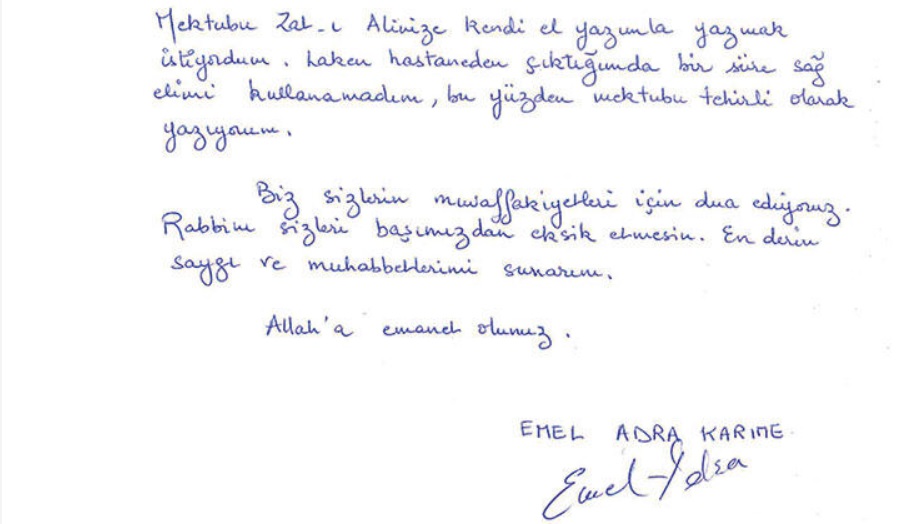 Mektubu Zat-ı Alinize kendi el yazımla yazmak
istiyordum. Laken hastaneden çıktığımda bir süre sağ
elimi kullanamadım, bu yüzden mektubu tehirli olarak
yazıyorum.
Biz sizlerin muvaffakiyetleri için dua ediyoruz.
Rabbim sizleri başımızdan eksik etmesin. En derin
saygı ve muhabbetlerimi sunarım.
Allah'a emanet olunuz.
EMEL ADRA KARIME
Emel Adra